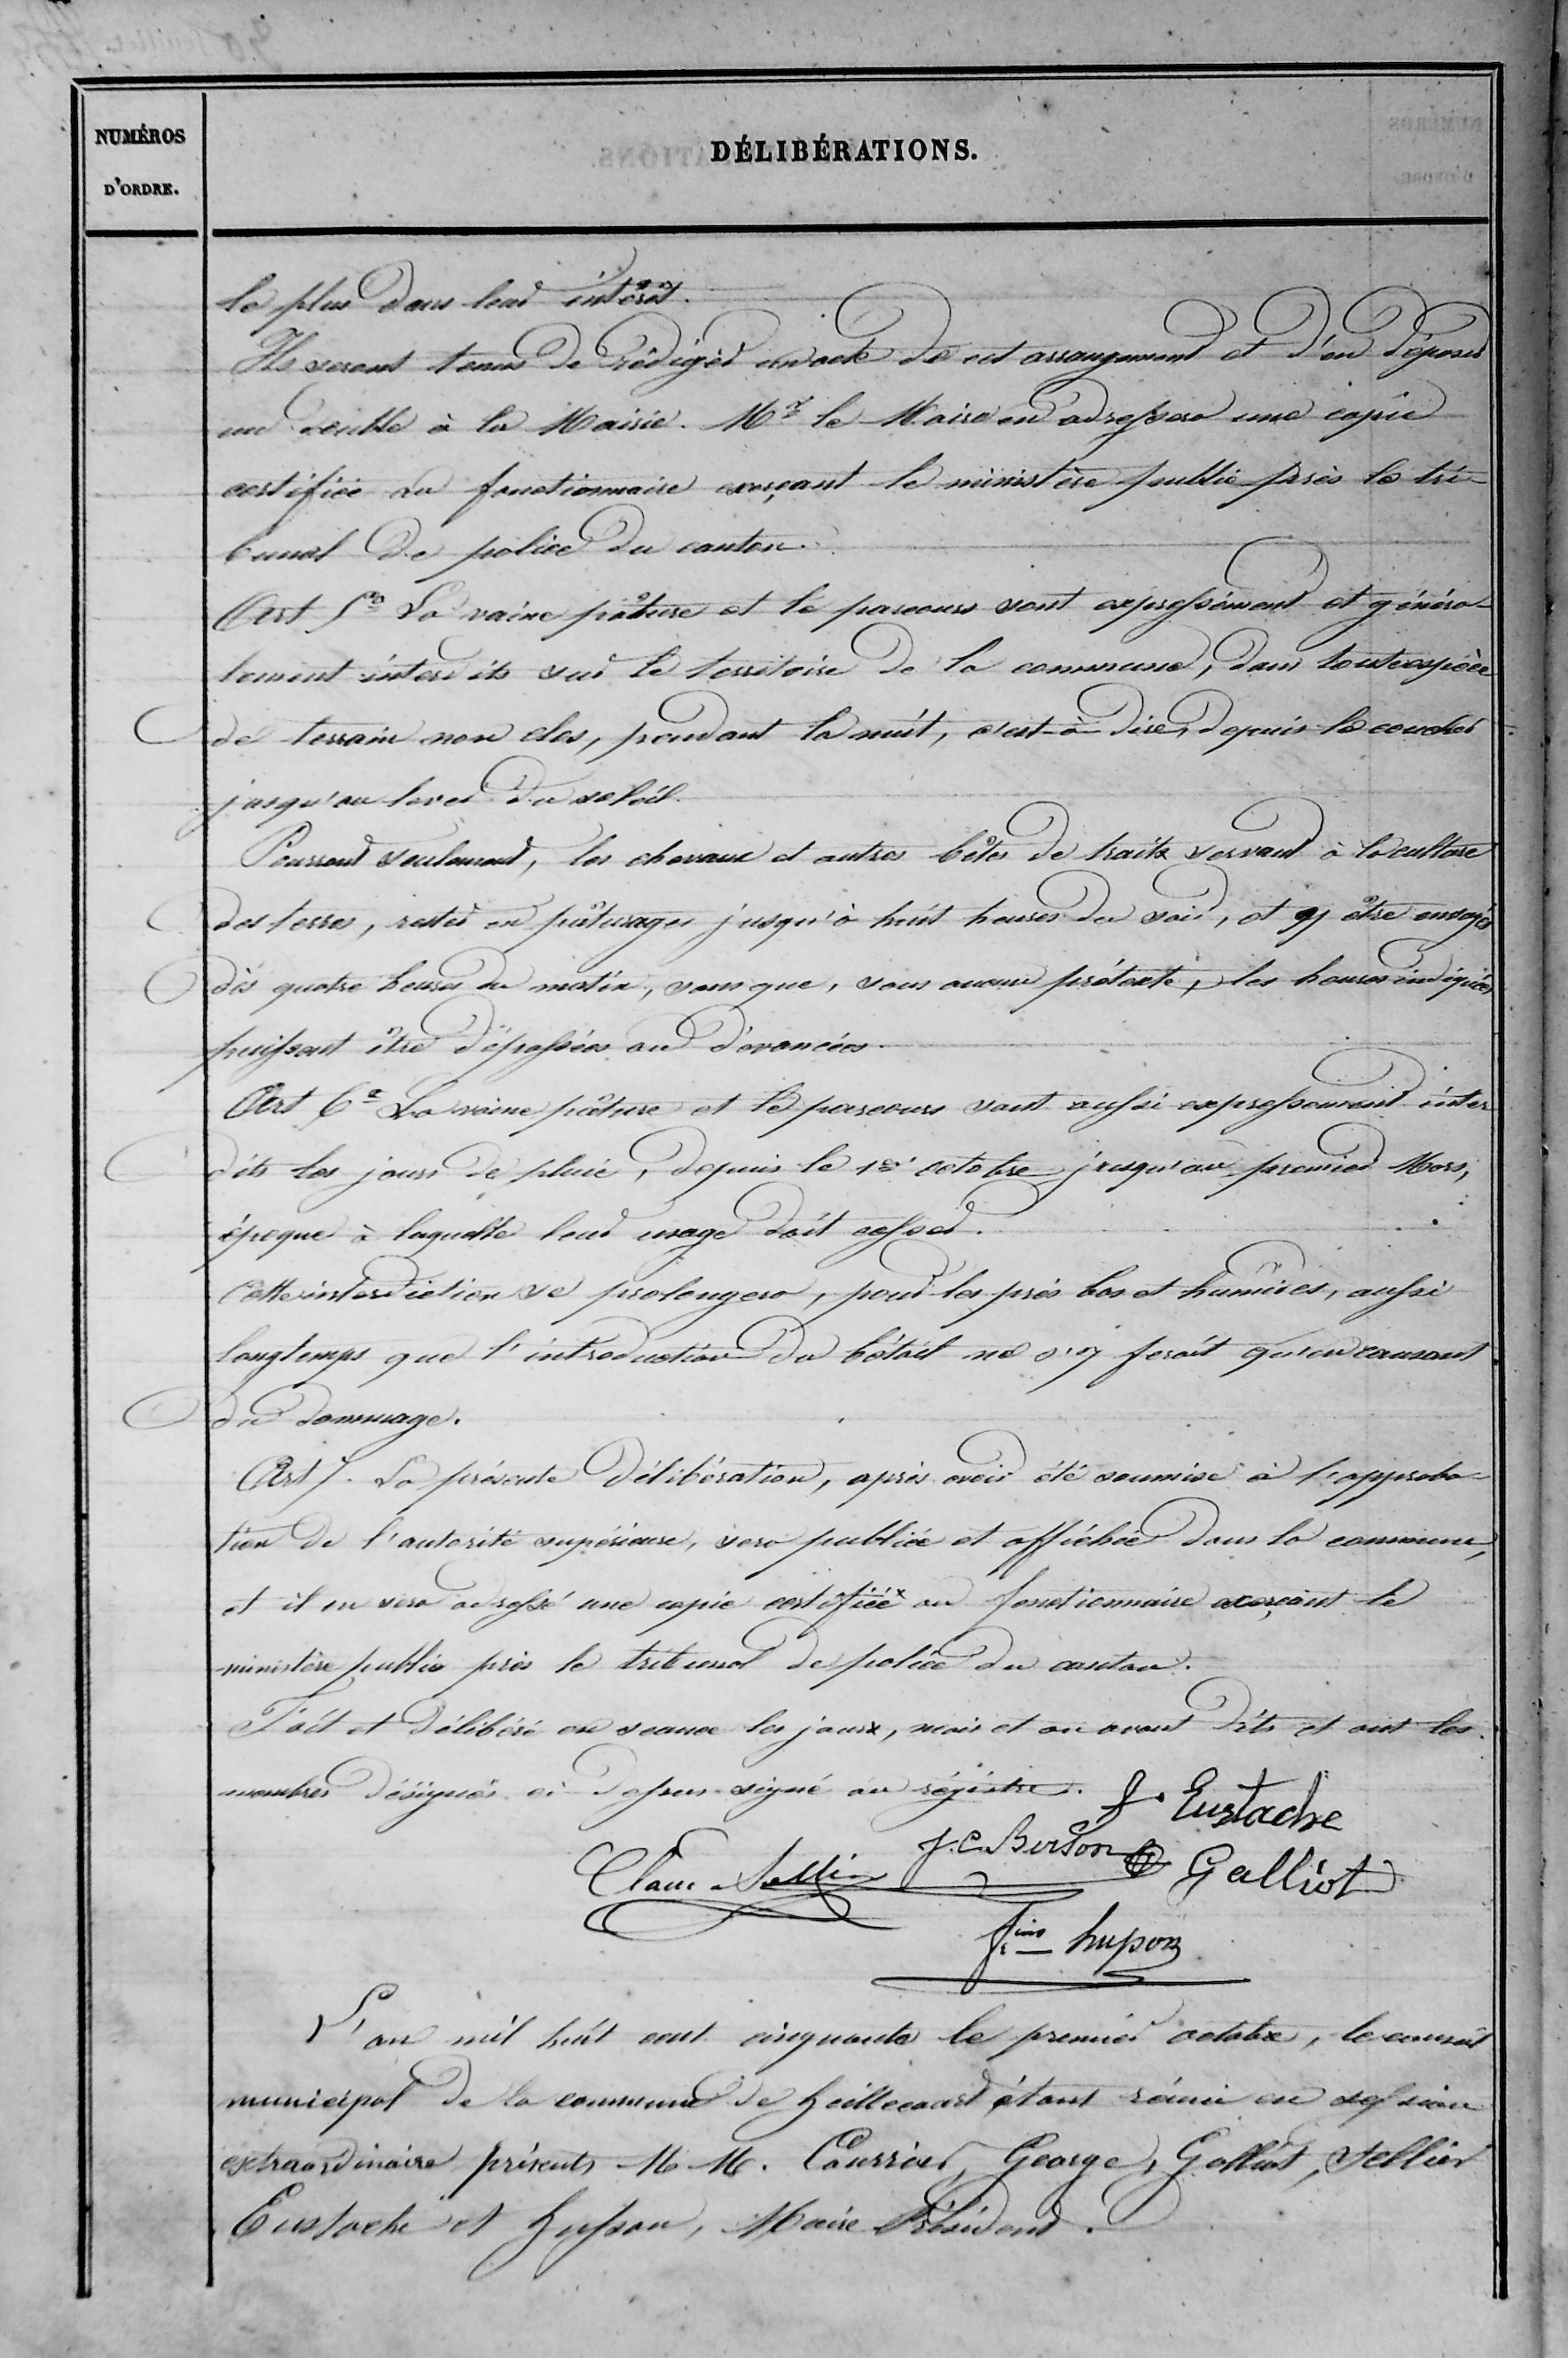 NUMÉROS
D'ORDRE.
DÉLIBÉRATIONS.
le plus dans leur intérêt.
Ils seront tenus de rédiger un acte de cet arrangement et d'en déposer
un double à la Mairie. Mr le Maire en adressera une copie
certifiée au fonctionnaire exerçant le ministère public près le tri-
bunal de police du canton.
Art 5e La vaine pâture et le parcours sont expressément et généra-
lement interdits sur le territoire de la commune, dans toute espèce
de terrain non clos, pendant la nuit, c'est-à-dire, depuis le coucher
jusqu'au lever du soleil.
Pourront seulement, les chevaux et autres bêtes de traits servant à la culture
des terres, rester en pâturages jusqu'à huit heures du soir, et y être envoyés
dès quatre heures du matin, sans que, sous aucun prétexte, les heures indiquées
puissent être dépassées ou dévancées.
Art 6e La vaine pâture et le parcours sont aussi expressément inter
dits les jours de pluie, depuis le 1er octobre jusqu'au premier Mars,
époque à laquelle leur usage doit cesser.
Cette interdiction se prolongera, pour les prés bas et humides, aussi
longtemps que l'introduction du bétail ne s'y ferait qu'en causant
du dommage.
Art 7. La présente délibération, après avoir été soumise à l'approba-
tion de l'autorité supérieure, sera publiée et affichée dans la commune,
et il en sera adressé une copie certifiée au fonctionnaire exerçant le
ministère public près le tribunal de police du canton.
Fait et délibéré en séance les jour, mois et an avant dits et ont les
membres désignés ci-dessus signé au régistre.
J. Eustache
J. C. Berson
Galliot
Claue Sellier
fçois hupon
L'an mil huit cent cinquante le premier octobre, le conseil
municipal de la commune de Heillecourt étant réuni en session
extraordinaire présents M M. Courrier, George, Galliot, Sellier
Eustache et Husson, Maire Président.